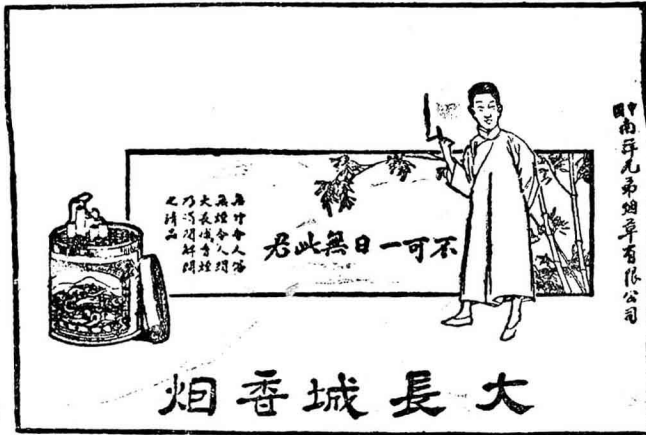 中國南洋兄弟烟草有限公司
不可一日無此君
無竹令人俗
無煙令人悶
大長城香煙
乃消閒解悶
之精品
大長城香烟